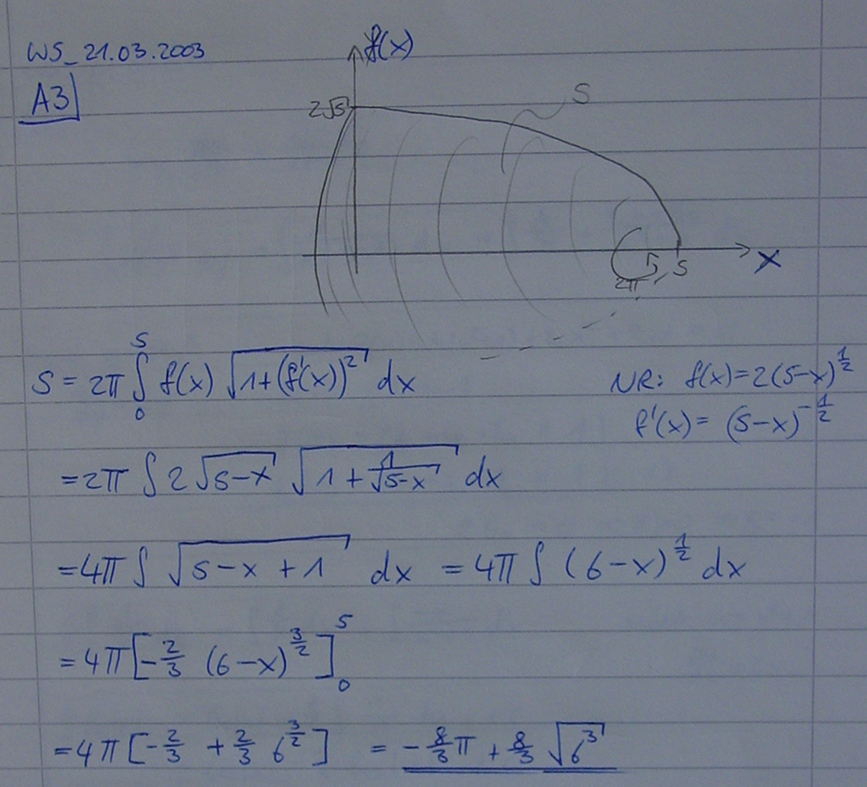 WS_21.03.2003
A3
f(x)
2√5
S
2π
5
x
S = 2π ∫₀⁵ f(x) √(1+(f'(x))²) dx
NR: f(x)=2(5-x)^(1/2)
f'(x) = (5-x)^(-1/2)
=2π ∫ 2 √(5-x) √(1 + 1/√(5-x)) dx
=4π ∫ √(5-x+1) dx = 4π ∫ (6-x)^(1/2) dx
=4π [-2/3 (6-x)^(3/2)]₀⁵
=4π [-2/3 + 2/3 6^(3/2)] = -8/3 π + 8/3 √(6³)